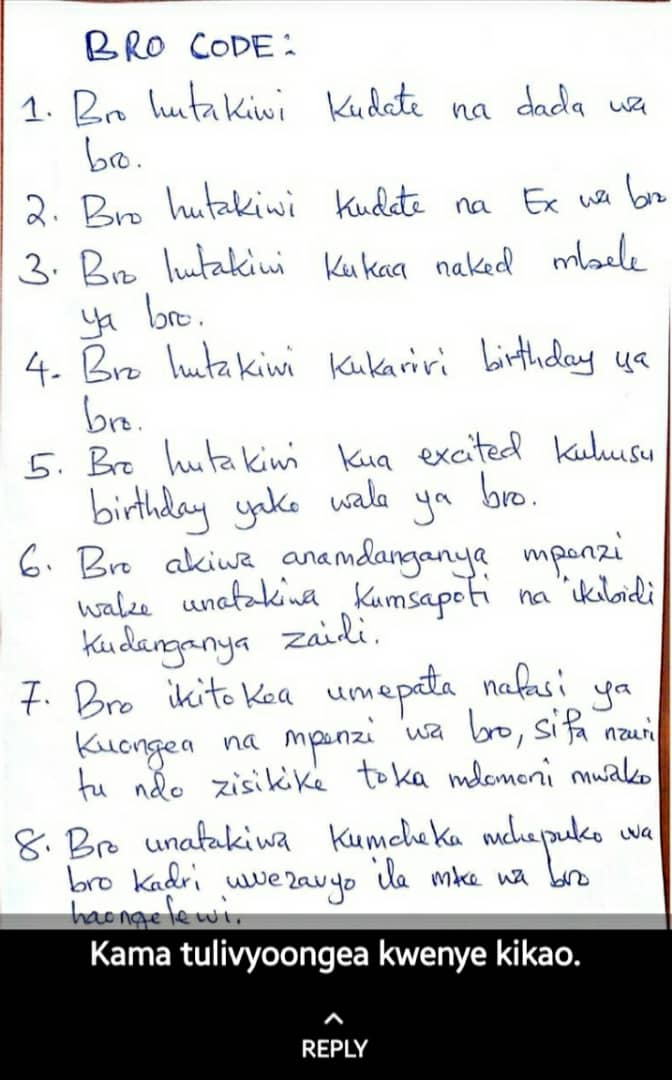 BRO CODE:
1. Bro hutakiwi kudate na dada wa
bro.
2. Bro hutakiwi kudate na Ex wa bro
3. Bro hutakiwi kukaa naked mbele
ya bro.
4. Bro hutakiwi kukariri birthday ya
bro.
5. Bro hutakiwi kua excited kuhusu
birthday yako wala ya bro.
6. Bro akiwa anamdanganya mpenzi
wake unatakiwa kumsapoti na ikibidi
kudanganya zaidi.
7. Bro ikitokea umepata nafasi ya
kuongea na mpenzi wa bro, sifa nzuri
tu ndo zisikike toka mdomoni mwako
8. Bro unatakiwa kumcheka mchepuko wa
bro kadri uwezavyo ila mke wa bro
haongelewi.
Kama tulivyoongea kwenye kikao.
REPLY